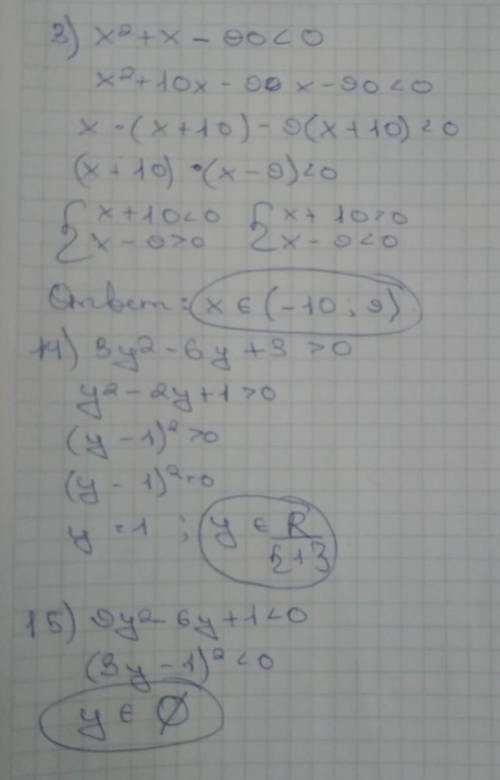 3) x² + x - 90 < 0
x² + 10x - 9x - 90 < 0
x · (x + 10) - 9(x + 10) < 0
(x + 10) · (x - 9) < 0
{ x + 10 < 0 { x + 10 > 0
{ x - 9 > 0 { x - 9 < 0
Ответ: x ∈ (-10 ; 9)
14) 3y² - 6y + 3 > 0
y² - 2y + 1 > 0
(y - 1)² > 0
(y - 1)² = 0
y = 1 ; y ∈ R / {1}
15) 9y² - 6y + 1 < 0
(3y - 1)² < 0
y ∈ Ø